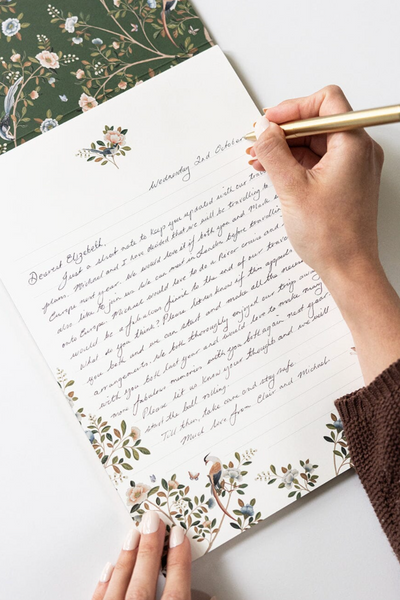 Wednesday 2nd October
Dearest Elizabeth,
Just a short note to keep you updated with our
plans. Michael and I have decided that we will be travelling to
Europe next year. We would love it if both you and Mark
also like to join us. We can meet in London before travelling
onto Europe. Michael would love to do a River cruise and
would be a fabulous finish to the end of our
what do you think? Please let me know if this
you both and we can start and make all the
arrangements. We both thoroughly enjoyed our trip away
with you both last year and would love to make many
more fabulous memories with you both again next year
Please let us know your thoughts and we will
start the ball rolling.
Till then, take care and stay safe
Much love from Clair and Michael